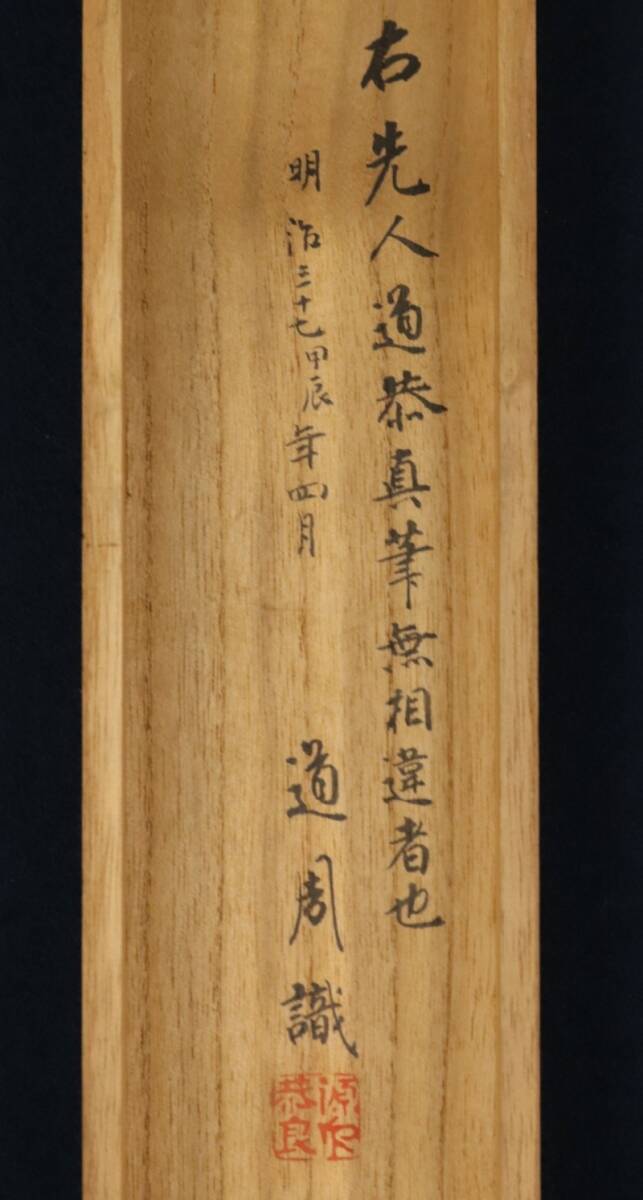 右先人道恭真筆無相違者也
明治三十七甲辰年四月
道周識